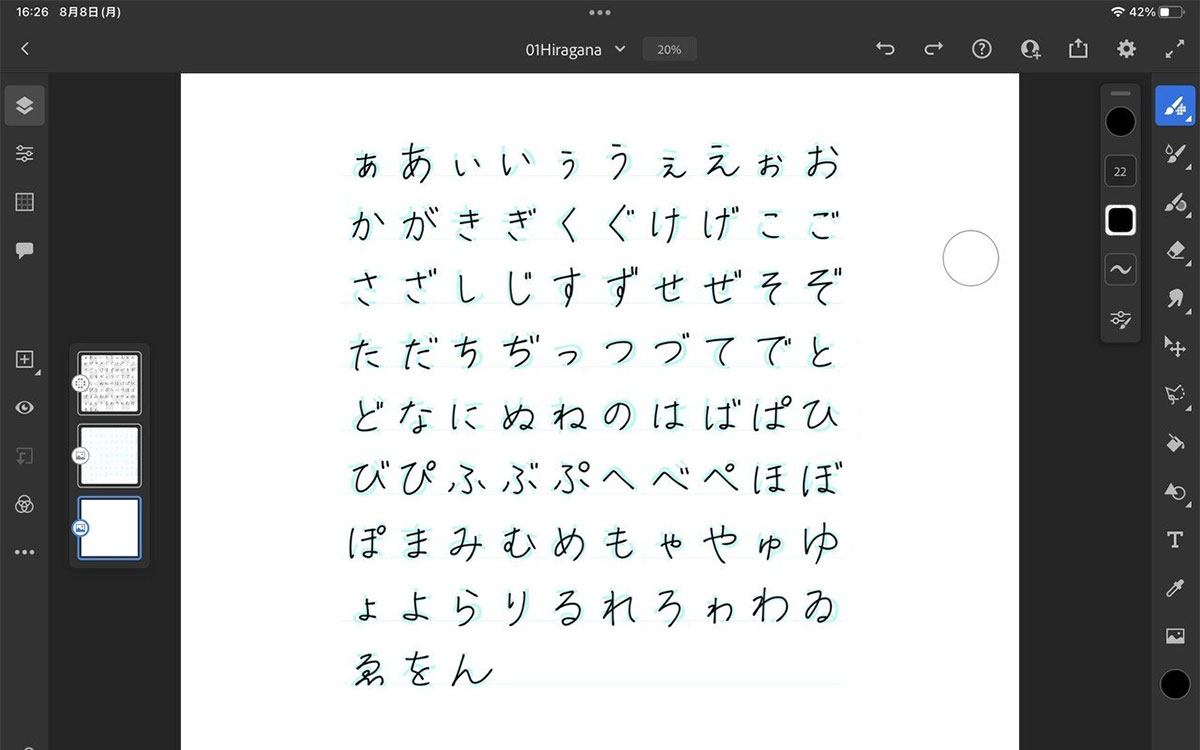 16:26 8月8日(月) 42%
01Hiragana 20%
22
ぁあぃいぅうぇえぉお
かがきぎくぐけげこご
さざしじすずせぜそぞ
ただちぢっつづてでと
どなにぬねのはばぱひ
びぴふぶぷへべぺほぼ
ぽまみむめもゃやゅゆ
ょよらりるれろゎわゐ
ゑをん